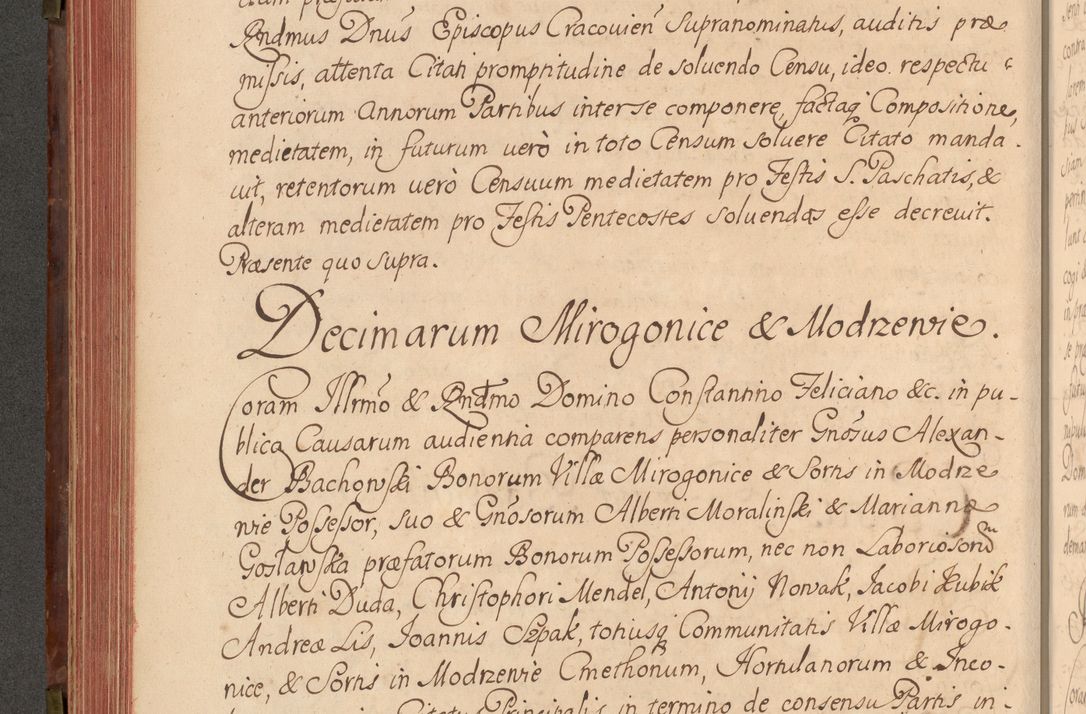 Rndmus Dnus Episcopus Cracovien Supranominatus, auditis præ
missis, attenta Citati promptitudine de soluendo Censu, ideo respectu
anteriorum Annorum Partibus inter se componere, factaq Compositione,
medietatem, in futurum uerò in toto Censum soluere Citato manda
uit, retentorum uerò Censuum medietatem pro Festis S. Paschatis, &
alteram medietatem pro Festis Pentecostes soluendas esse decreuit.
Præsente quo supra.
Decimarum Mirogonice & Modrzewie.
Coram Illrmo & Rndmo Domino Constantino Feliciano &c. in pu-
blica Causarum audientia comparens personaliter Gnosus Alexan-
der Bachowski Bonorum Villæ Mirogonice & Sortis in Modrze
wie Possessor, suo & Gnosorum Alberti Moraliński & Mariannæ
Goslawska præfatorum Bonorum Possessorum, nec non Laboriosorum
Alberti Duda, Christophori Mendel, Antonij Nowak, Jacobi Kubik
Andreæ Lis, Joannis Szpak, totiusq Communitatis Villæ Mirogo-
nice, & Sortis in Modrzewie Cmethonum, Hortulanorum & Inco-
Principalis in termino de consensu Partis in-